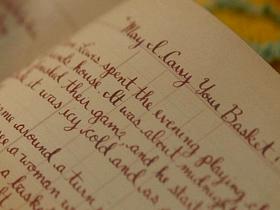 "May I Carry Your Basket
spent the evening playing
house. It was about midnight
their game, and he start
it was icy cold and as
me around a turn
a woman w
a basket